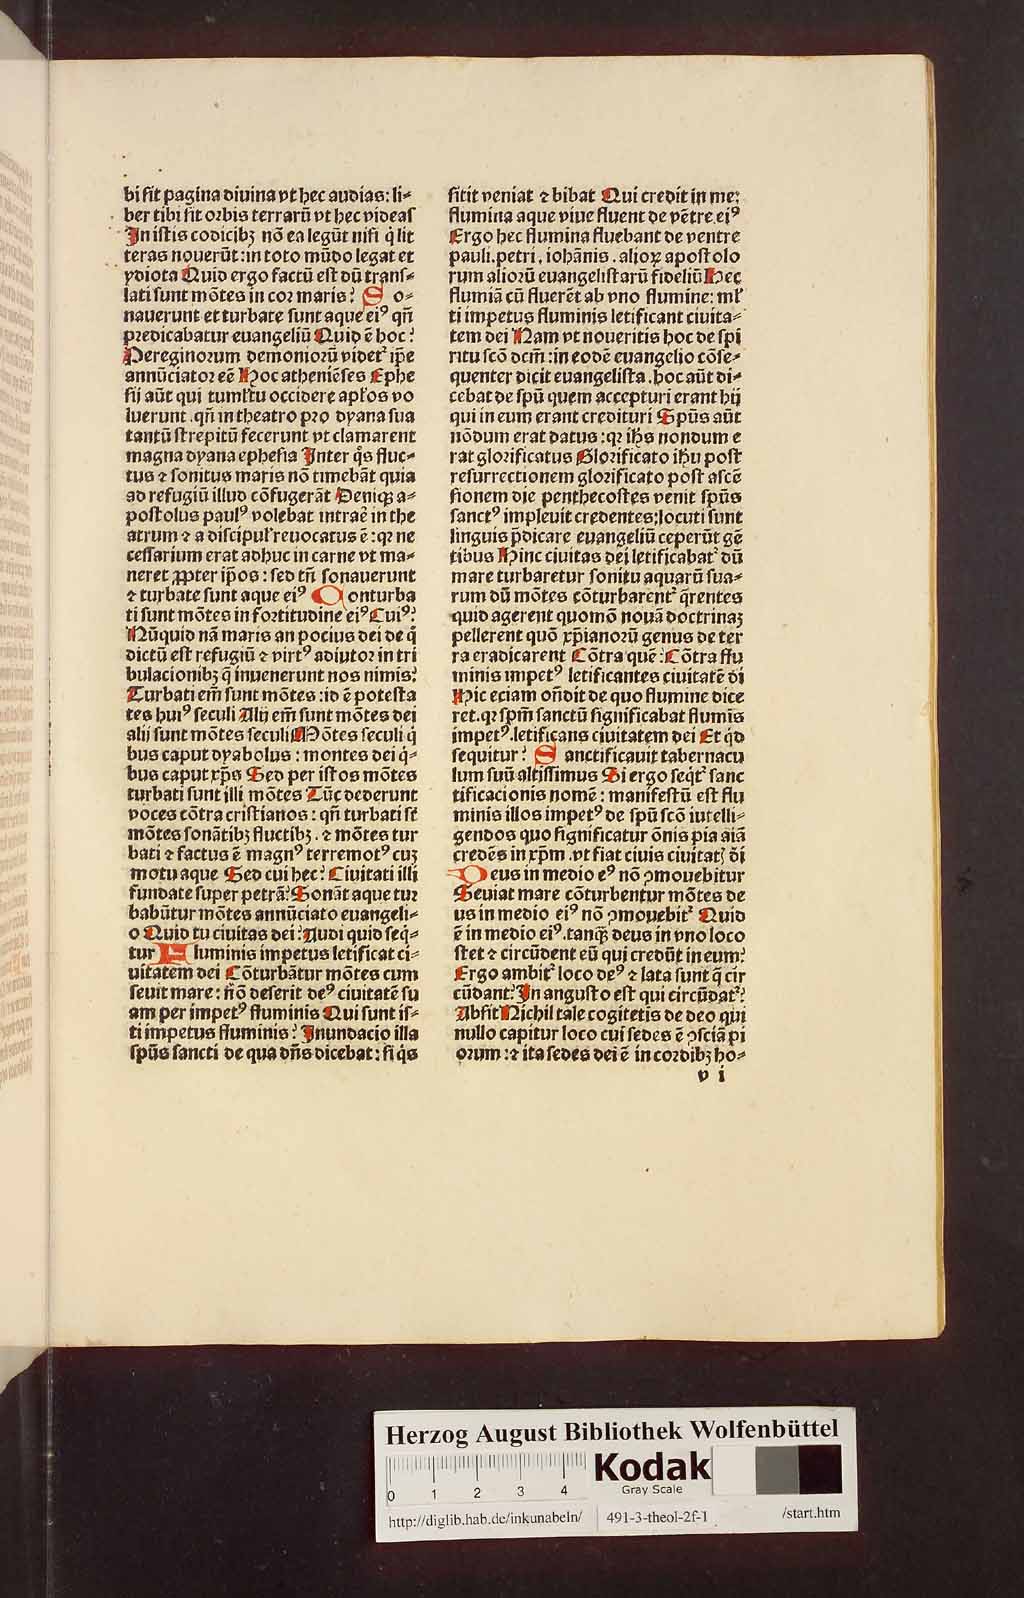 bi sit pagina diuina vt hec audias: li⸗
ber tibi sit orbis terrarū vt hec videas
In istis codicibꝫ nō ea legūt nisi q̄ lit
teras nouerūt: in toto mūdo legat et
ydiota Quid ergo factū est dū trans⸗
lati sunt mōtes in cor maris? So⸗
nauerunt et turbate sunt aque eiꝰ qn̄
predicabatur euangeliū Quid ē hoc?
Peregrinorum demoniorū videt᷑ ip̄e
annūciator eē Hoc atheniēses Ephe
sij aūt qui tumłtu occidere apłos vo
luerunt .qn̄ in theatro pro dyana sua
tantū strepitū fecerunt vt clamarent
magna dyana ephesia Inter q̊s fluc⸗
tus ⁊ sonitus maris nō timebāt quia
ad refugiū illud cōfugerāt Deniqꝫ a⸗
postolus paulꝰ volebat intrare in the
atrum ⁊ a discipuł reuocatus ē: qꝛ ne
cessarium erat adhuc in carne vt ma⸗
neret ꝓpter ip̄os: sed tn̄ sonauerunt
⁊ turbate sunt aque eiꝰ Conturba
ti sunt mōtes in fortitudine eiꝰ Cuiꝰ?
Nūquid nā maris an pocius dei de q̊
dictū est refugiū ⁊ virtꝰ adiutor in tri
bulacionibꝫ q̄ inuenerunt nos nimis?
Turbati em̄ sunt mōtes: id ē potesta
tes huiꝰ seculi Alij em̄ sunt mōtes dei
alij sunt mōtes seculi Mōtes seculi q̊
bus caput dyabolus: montes dei q̊⸗
bus caput xp̄s Sed per istos mōtes
turbati sunt illi mōtes Tūc dederunt
voces cōtra cristianos: qn̄ turbati st̄
mōtes sonātibꝫ fluctibꝫ. ⁊ mōtes tur
bati ⁊ factus ē magnꝰ terremotꝰ cuꝫ
motu aque Sed cui hec? Ciuitati illi
fundate super petrā? Sonāt aque tur
babūtur mōtes annūciato euangeli⸗
o Quid tu ciuitas dei? Audi quid seq̄⸗
tur Fluminis impetus letificat ci⸗
uitatem dei Cōturbātur mōtes cum
seuit mare: nō deserit deꝰ ciuitatē su
am per impetꝰ fluminis Qui sunt is⸗
ti impetus fluminis? Inundacio illa
spūs sancti de qua dn̄s dicebat: si q̊s
sitit veniat ⁊ bibat Qui credit in me:
flumina aque viue fluent de vētre eiꝰ
Ergo hec flumina fluebant de ventre
pauli. petri. iohānis. alioꝝ apostolo
rum aliorū euangelistarū fideliū Hec
flumiā cū fluerēt ab vno flumine: mł
ti impetus fluminis letificant ciuita⸗
tem dei Nam vt noueritis hoc de spi
ritu scō dcm̄: in eodē euangelio cōse⸗
quenter dicit euangelista. hoc aūt di⸗
cebat de spū quem accepturi erant hij
qui in eum erant credituri Spūs aūt
nōdum erat datus: qꝛ ih̄s nondum e
rat glorificatus Glorificato ih̄u post
resurrectionem glorificato post ascē
sionem die penthecostes venit spūs
sanctꝰ impleuit credentes: locuti sunt
linguis p̄dicare euangeliū ceperūt gē
tibus Hinc ciuitas dei letificabat᷑ dū
mare turbaretur sonitu aquarū sua⸗
rum dū mōtes cōturbarent᷑ q̄rentes
quid agerent quomō nouā doctrinaꝫ
pellerent quō xp̄ianorū genus de ter
ra eradicarent Cōtra quē? Cōtra flu
minis impetꝰ letificantes ciuitatē d̄i
Hic eciam on̄dit de quo flumine dice
ret. qꝛ spm̄ sanctū significabat flumīs
impetꝰ. letificans ciuitatem dei Et q̄d
sequitur? Sanctificauit tabernacu
lum suū altissimus Si ergo seqt᷑ sanc
tificacionis nomē: manifestū est flu
minis illos impetꝰ de spū scō iutelli⸗
gendos quo significatur ōnis pia aīā
credēs in xp̄m .vt fiat ciuis ciuitatꝭ d̄i
Deus in medio eꝰ nō ꝯmouebitur
Seuiat mare cōturbentur mōtes de
us in medio eiꝰ nō ꝯmouebit᷑ Quid
ē in medio eiꝰ. tanqꝫ deus in vno loco
stet ⁊ circūdent eū qui credūt in eum?
Ergo ambit᷑ loco deꝰ ⁊ lata sunt q̄ cir
cūdant? In angusto est qui circūdat᷑?
Absit Nichil tale cogitetis de deo qui
nullo capitur loco cui sedes ē ꝯsciā pi
orum: ⁊ ita sedes dei ē in cordibꝫ ho⸗
v i
Herzog August Bibliothek Wolfenbüttel
0 1 2 3 4
Kodak
Gray Scale
http://diglib.hab.de/inkunabeln/
491-3-theol-2f-1
/start.htm